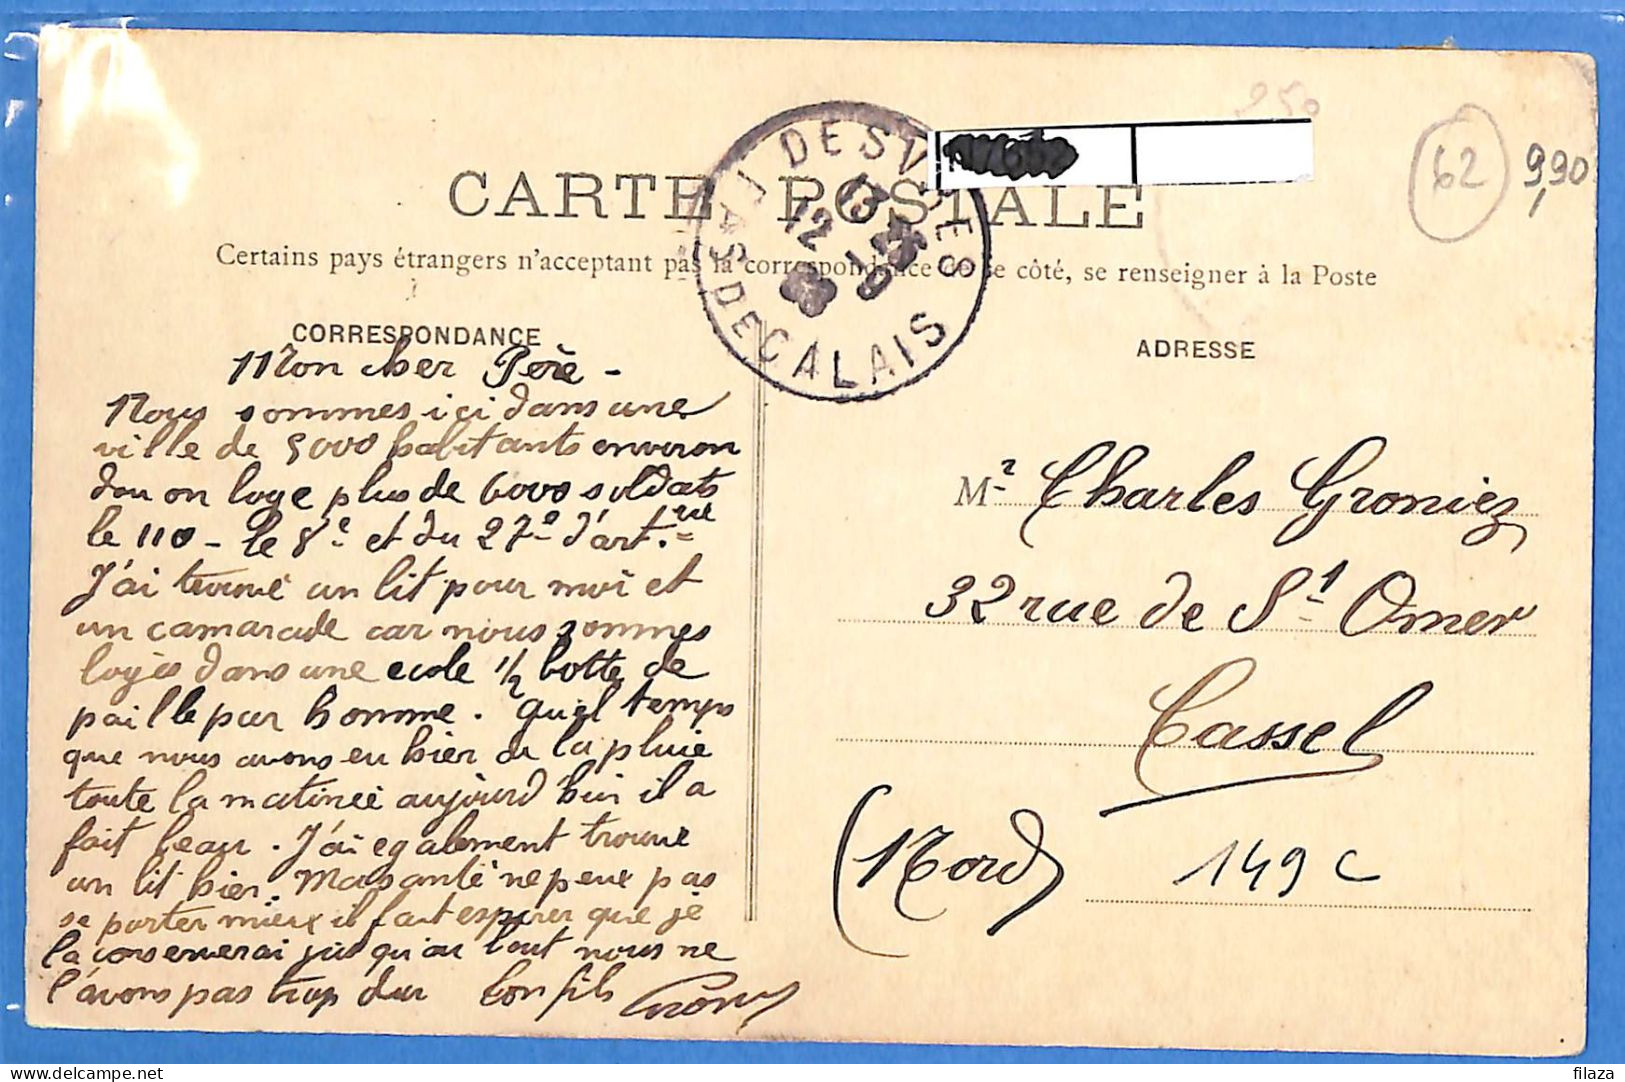 250
62
9,90
DESVRES
PAS DE CALAIS
13
12
CARTE POSTALE
Certains pays étrangers n'acceptant pas la correspondance de ce côté, se renseigner à la Poste
CORRESPONDANCE
Mon cher Père -
Nous sommes ici dans une
ville de 5000 habitants environ
dou on loge plus de 6000 soldats
le 110 - le 8e et du 27e d'art.rie
J'ai trouvé un lit pour moi et
un camarade car nous sommes
logés dans une ecole 1/2 botte de
paille par homme. Quel temps
que nous avons eu hier de la pluie
toute la matinée aujourd hui il a
fait beau. J'ai egalement trouvé
un lit hier. Ma santé ne peut pas
se porter mieux il faut esperer que je
la conserverai jusqu'au bout nous ne
l'avons pas trop dur ton fils
ADRESSE
Mr Charles Groniez
32 rue de St Omer
Cassel
(Nord)
149 C
filaza